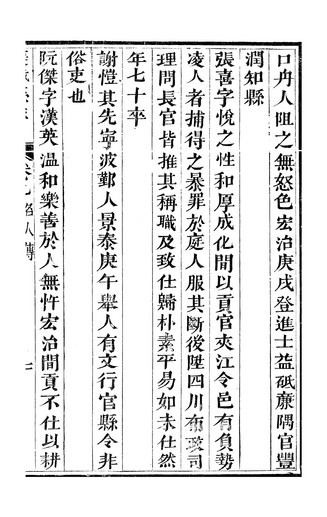 口舟人阻之無怒色宏治庚戌登進士益砥亷隅官豐
潤知縣
張喜字悅之性和厚成化間以貢官夾江令邑有負勢
凌人者捕得之暴罪於庭人服其斷後陞四川布政司
理問長官皆推其稱職及致仕歸朴素平易如未仕然
年七十卒
謝愷其先寧波鄞人景泰庚午舉人有文行官縣令非
俗吏也
阮傑字漢英温和樂善於人無忤宏治間貢不仕以耕